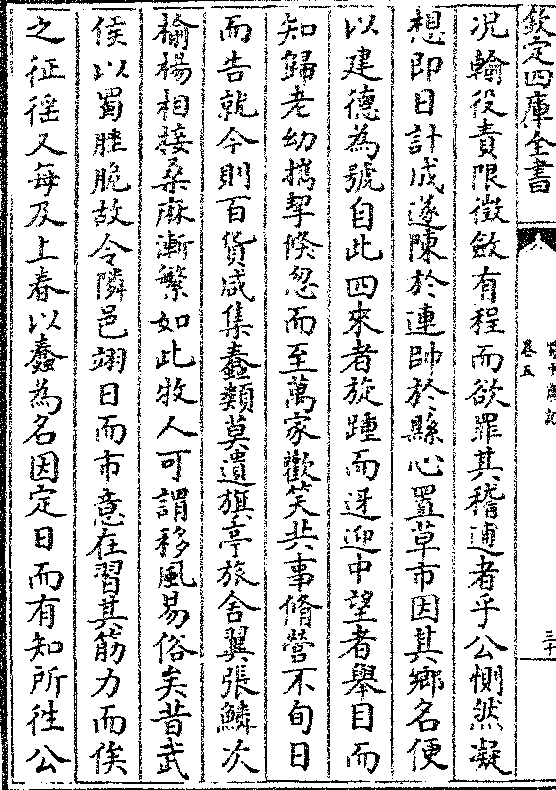 欽定四庫全書
卷五
三十
况輸役責限徵斂有程而欲罪其稽逋者乎公惻然凝
想即日計成遂陳於連帥於縣心置草市因其鄉名便
以建德為號自此四來者旋踵而迓迎中望者舉目而
知歸老幼攜挈倏忽而至萬家歡笑共事脩營不旬日
而告就今則百貨咸集蠢類莫遺旗亭旅舍翼張鱗次
榆楊相接桑麻漸繁如此牧人可謂移風易俗矣昔武
侯以蜀脞脆故令隣邑翊日而市意在習其筋力而俟
之征徭又每及上春以蠶為名因定日而有知所往公